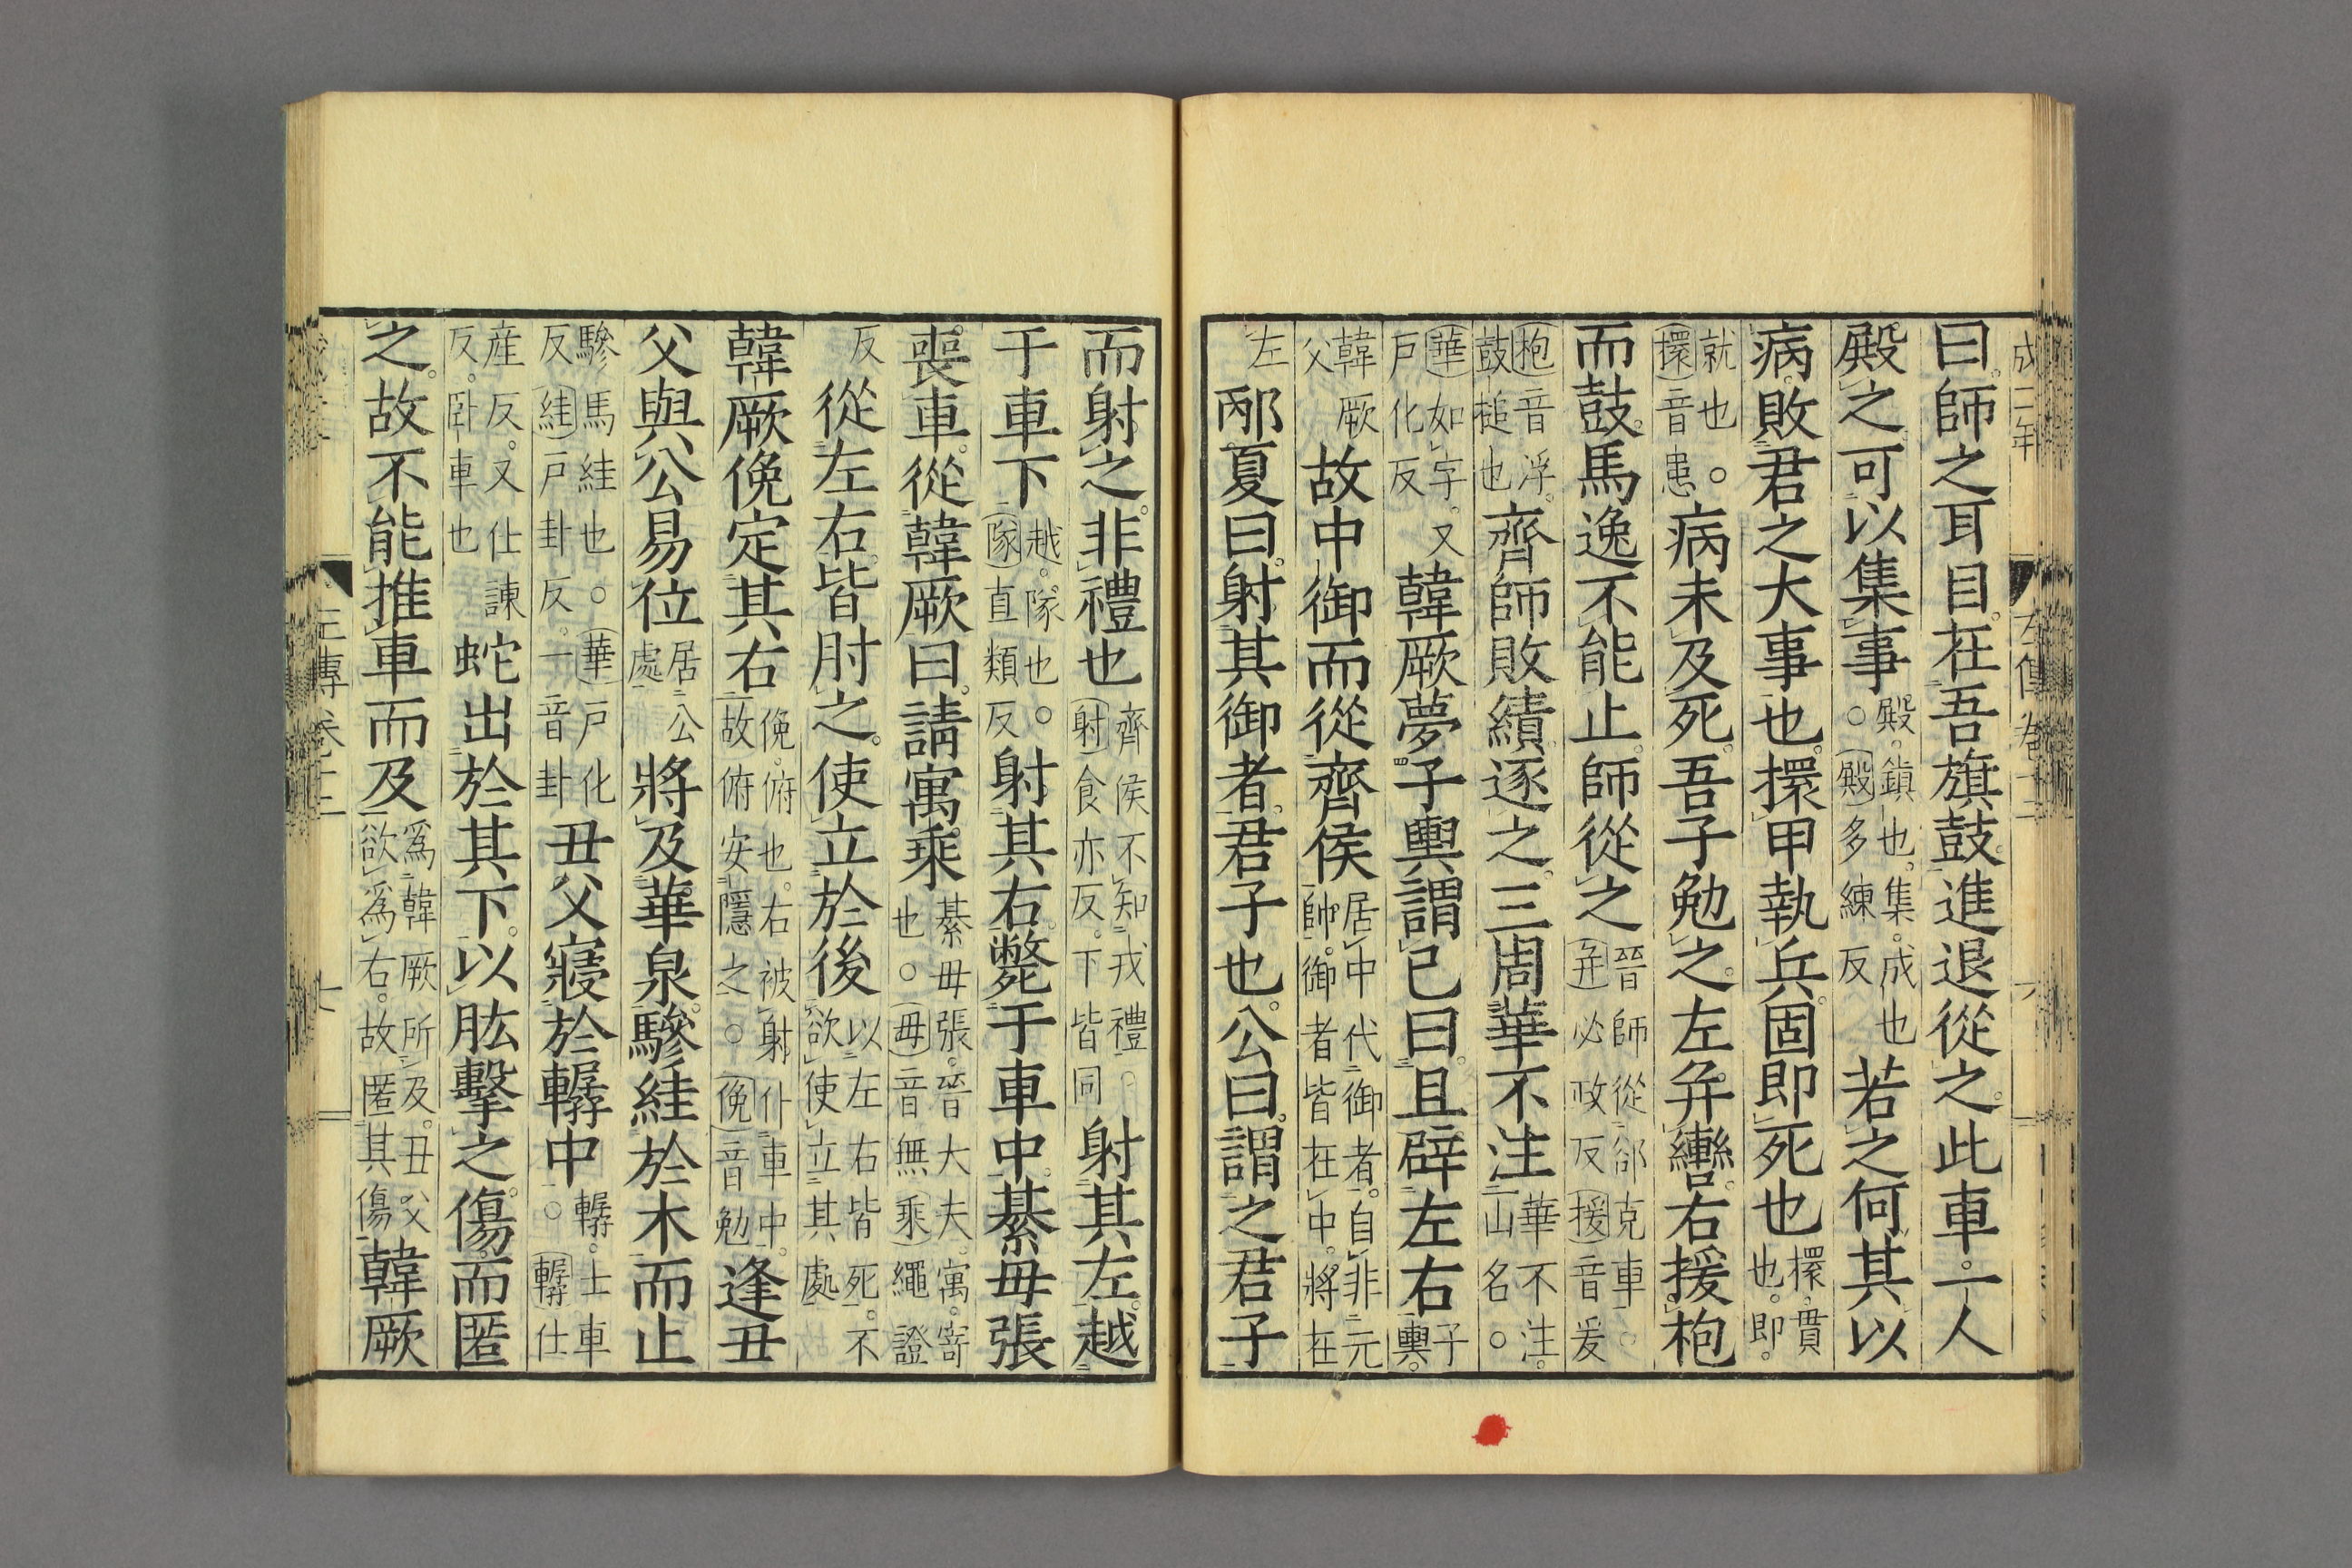 成二年
左傳卷十二
曰。師之耳目。在吾旗鼓。進退從之。此車一人
殿之可以集事殿。鎮也。集。成也○殿多練反若之何其以
病。敗君之大事也。擐甲執兵。固即死也擐。貫也。即。
就也。○擐音患病未及死。吾子勉之。左并轡。右援枹
而鼓。馬逸不能止。師從之晉師從郤克車○并必政反援音爰
枹音浮。鼓槌也齊師敗績。逐之。三周華不注華不注。山名。○
華如字。又戶化反韓厥夢子輿謂己曰。且辟左右子輿。
韓厥父故中御而從齊侯居中代御者。自非元帥。御者皆在中。將在
左邴夏曰。射其御者。君子也。公曰。謂之君子
而射之。非禮也齊侯不知戎禮○射食亦反。下皆同射其左。越
于車下越。隊也。○隊直類反射其右。斃于車中。綦毋張
喪車。從韓厥曰。請寓乘綦毋張。晉大夫。寓。寄也。○毋音無乘繩證
反從左右。皆肘之。使立於後以左右皆死。不欲使立其處
韓厥俛定其右俛。俯也。右被射仆車中。故俯安隱之○俛音勉逢丑
父與公易位居公處將及華泉。驂絓於木而止
驂馬絓也。○華戶化反絓戶卦反。一音卦丑父寢於轏中轏。士車○轏仕
產反。又仕諫反。臥車也蛇出於其下。以肱擊之。傷而匿
之。故不能推車而及爲韓厥所及。丑父欲爲右。故匿其傷韓厥